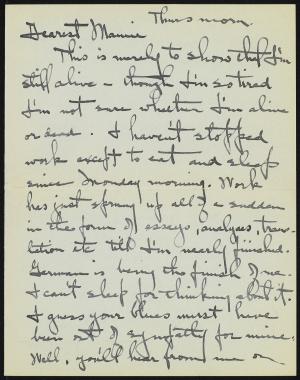 Thurs morn.
Dearest Mamie
This is merely to show that I'm
still alive – though I'm so tired
I'm not sure whether I'm alive
or dead. I haven't stopped
work except to eat and sleep
since Monday morning. Work
has just sprung up all of a sudden
in the form of essays, analyses, trans-
lation etc till I'm nearly finished.
German is being the finish of me.
I can't sleep for thinking about it.
I guess your blues must have
been out of sympathy for mine.
Well, you'll hear from me on